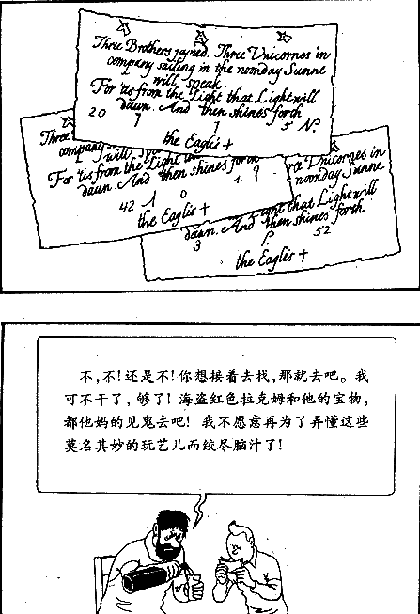 Three Brothers joyned. Three Unicornes in
company sailing in the noonday Sunne
will speak
For 'tis from the Light that Light will
dawn. And then shines forth
20 7 1 5 N.
the Eagle's +
Three
company
will
For 'tis from the Light
dawn. And then shines forth
42 1 0 1 9
the Eagle's +
Unicornes in
noonday Sunne
that Light will
dawn. And then shines forth.
3 52
the Eagle's +
不,不!还是不!你想接着去找,那就去吧。我
可不干了,够了!海盗红色拉克姆和他的宝物,
都他妈的见鬼去吧!我不愿意再为了弄懂这些
莫名其妙的玩艺儿而绞尽脑汁了!